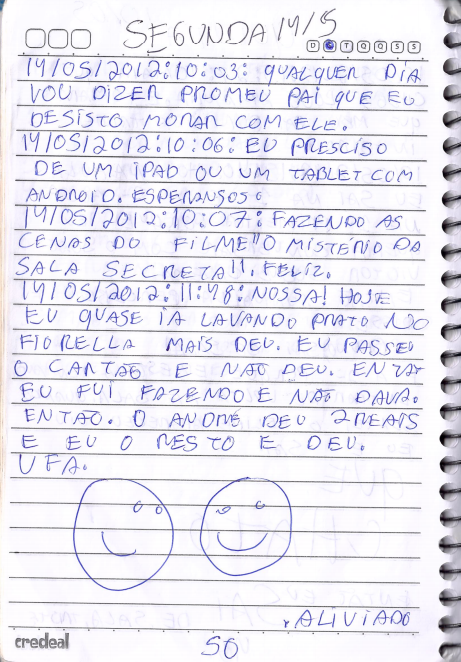 SEGUNDA 14/5
D S T Q Q S S
14/05/2012:10:03: QUALQUER DIA
VOU DIZER PROMEU PAI QUE EU
DESISTO MORAR COM ELE.
14/05/2012:10:06: EU PRESCISO
DE UM IPAD OU UM TABLET COM
ANDROID. ESPERANSOSO
14/05/2012:10:07: FAZENDO AS
CENAS DO FILME "O MISTÉRIO DA
SALA SECRETA". FELIZ.
14/05/2012:11:48: NOSSA! HOJE
EU QUASE IA LAVANDO PRATO NO
FIORELLA MAIS DEU. EU PASSEI
O CARTÃO E NÃO DEU. ENTÃO
EU FUI FAZENDO E NÃO DAVA.
ENTÃO. O ANDRÉ DEU 2 REAIS
E EU O RESTO E DEU.
UFA.
ALIVIADO
credeal
50